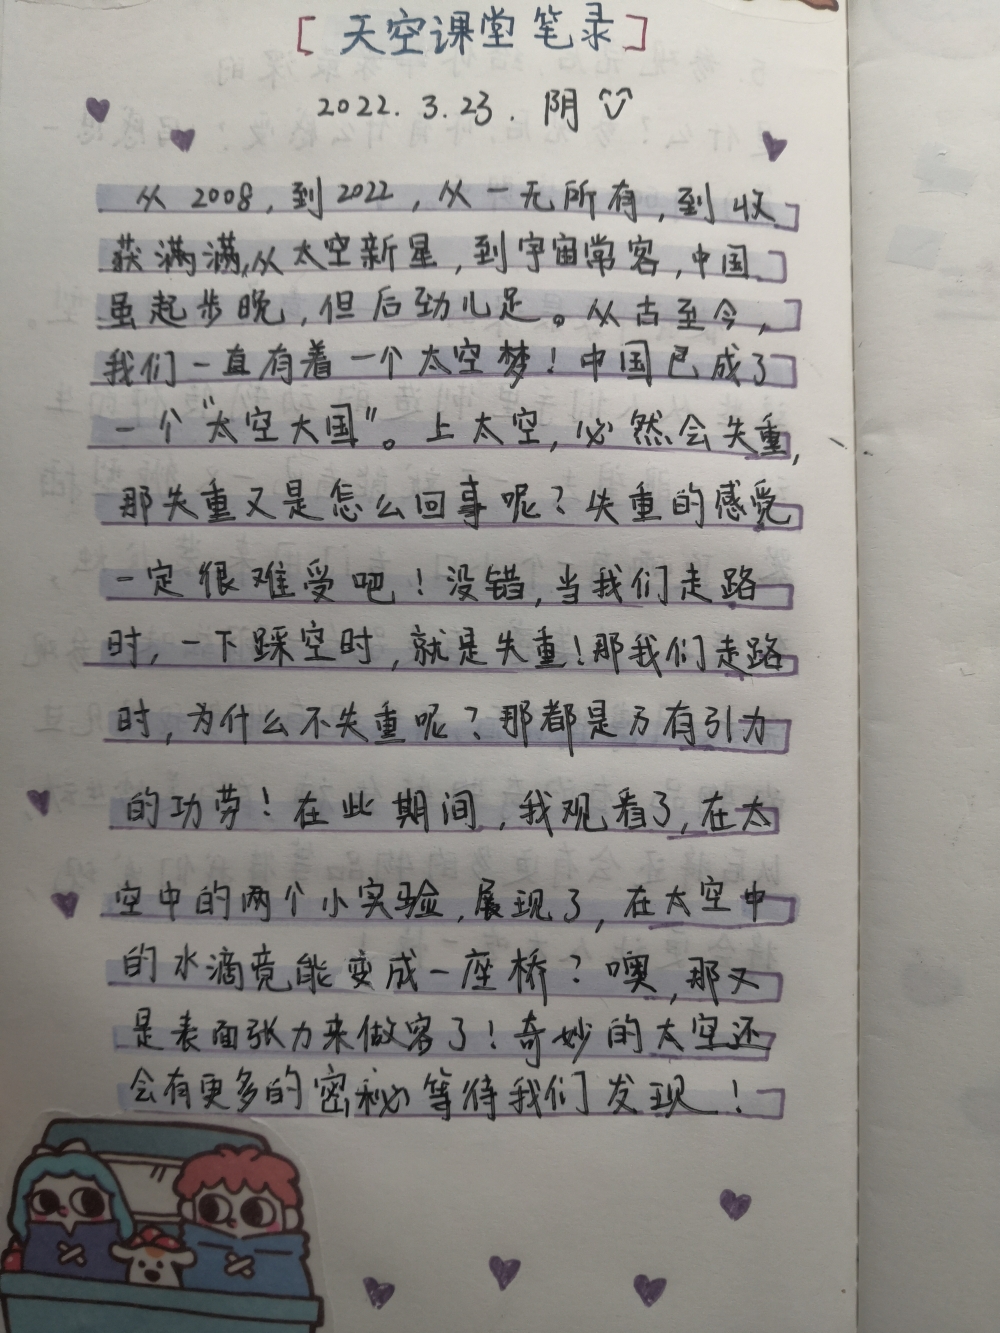 [天空课堂笔录]
2022.3.23.阴
从2008,到2022,从一无所有,到收
获满满,从太空新星,到宇宙常客,中国
虽起步晚,但后劲儿足。从古至今,
我们一直有着一个太空梦!中国已成了
一个“太空大国”。上太空,必然会失重,
那失重又是怎么回事呢?失重的感觉
一定很难受吧!没错,当我们走路
时,一下踩空时,就是失重!那我们走路
时,为什么不失重呢?那都是万有引力
的功劳!在此期间,我观看了,在太
空中的两个小实验,展现了,在太空中
的水滴竟能变成一座桥?噢,那又
是表面张力来做客了!奇妙的太空还
会有更多的密秘等待我们发现!